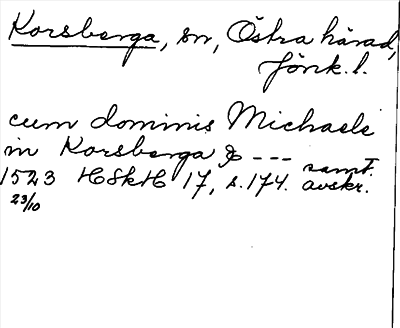 Korsberga, sn, Östra härad,
Jönk.l.
cum dominis Michaele
in Korsberga & ---
1523 HSkH 17, s.174. samt. avskr.
23/10